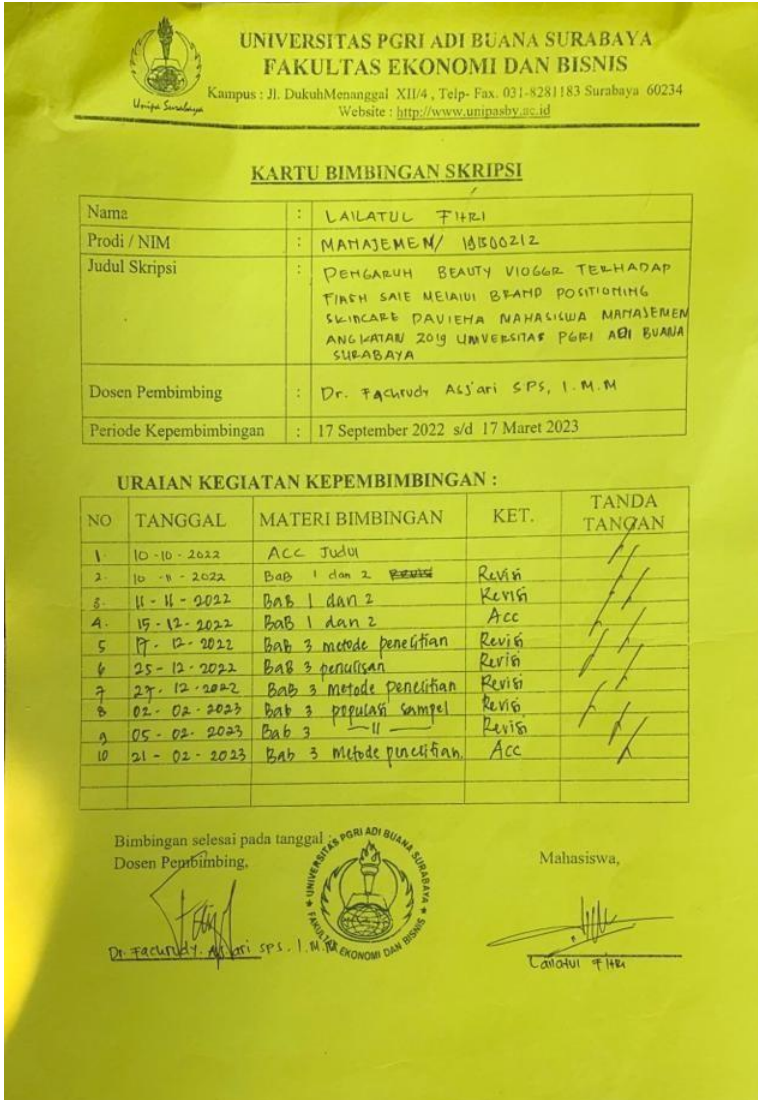 UNIVERSITAS PGRI ADI BUANA SURABAYA
FAKULTAS EKONOMI DAN BISNIS
Kampus : Jl. DukuhMenanggal XII/4 , Telp- Fax. 031-8281183 Surabaya 60234
Website : http://www.unipasby.ac.id
Unipa Surabaya
KARTU BIMBINGAN SKRIPSI
Nama : LAILATUL FITRI
Prodi / NIM : MANAJEMEN/ 19B00212
Judul Skripsi : PENGARUH BEAUTY VlOGGR TERHADAP
FlASH SAlE MElAlUI BRAND POSITIONING
SKINCARE DAVIENA MAHASISWA MANAJEMEN
ANGKATAN 2019 UNIVERSITAS PGRI ADI BUANA
SURABAYA
Dosen Pembimbing : Dr. Fachrudy Asj'ari SPS, I.M.M
Periode Kepembimbingan : 17 September 2022 s/d 17 Maret 2023
URAIAN KEGIATAN KEPEMBIMBINGAN :
NO TANGGAL MATERI BIMBINGAN KET. TANDA TANGAN
1. 10-10-2022 ACC Judul
2. 10-11-2022 BAB 1 dan 2 Revisi
3. 11-11-2022 BAB 1 dan 2 Revisi
4. 15-12-2022 BAB 1 dan 2 Acc
5 17-12-2022 Bab 3 metode penelitian Revisi
6 25-12-2022 BAB 3 penulisan Revisi
7 27-12-2022 BAB 3 metode penelitian Revisi
8 02-02-2023 Bab 3 populasi sampel Revisi
9 05-02-2023 Bab 3 —11— Revisi
10 21-02-2023 Bab 3 metode penelitian. Acc
Bimbingan selesai pada tanggal :
Dosen Pembimbing,
Mahasiswa,
UNIVERSITAS PGRI ADI BUANA SURABAYA
FAKULTAS EKONOMI DAN BISNIS
Dr. Fachrudy. Asj'ari SPS. I.M.M
Lailatul Fitri